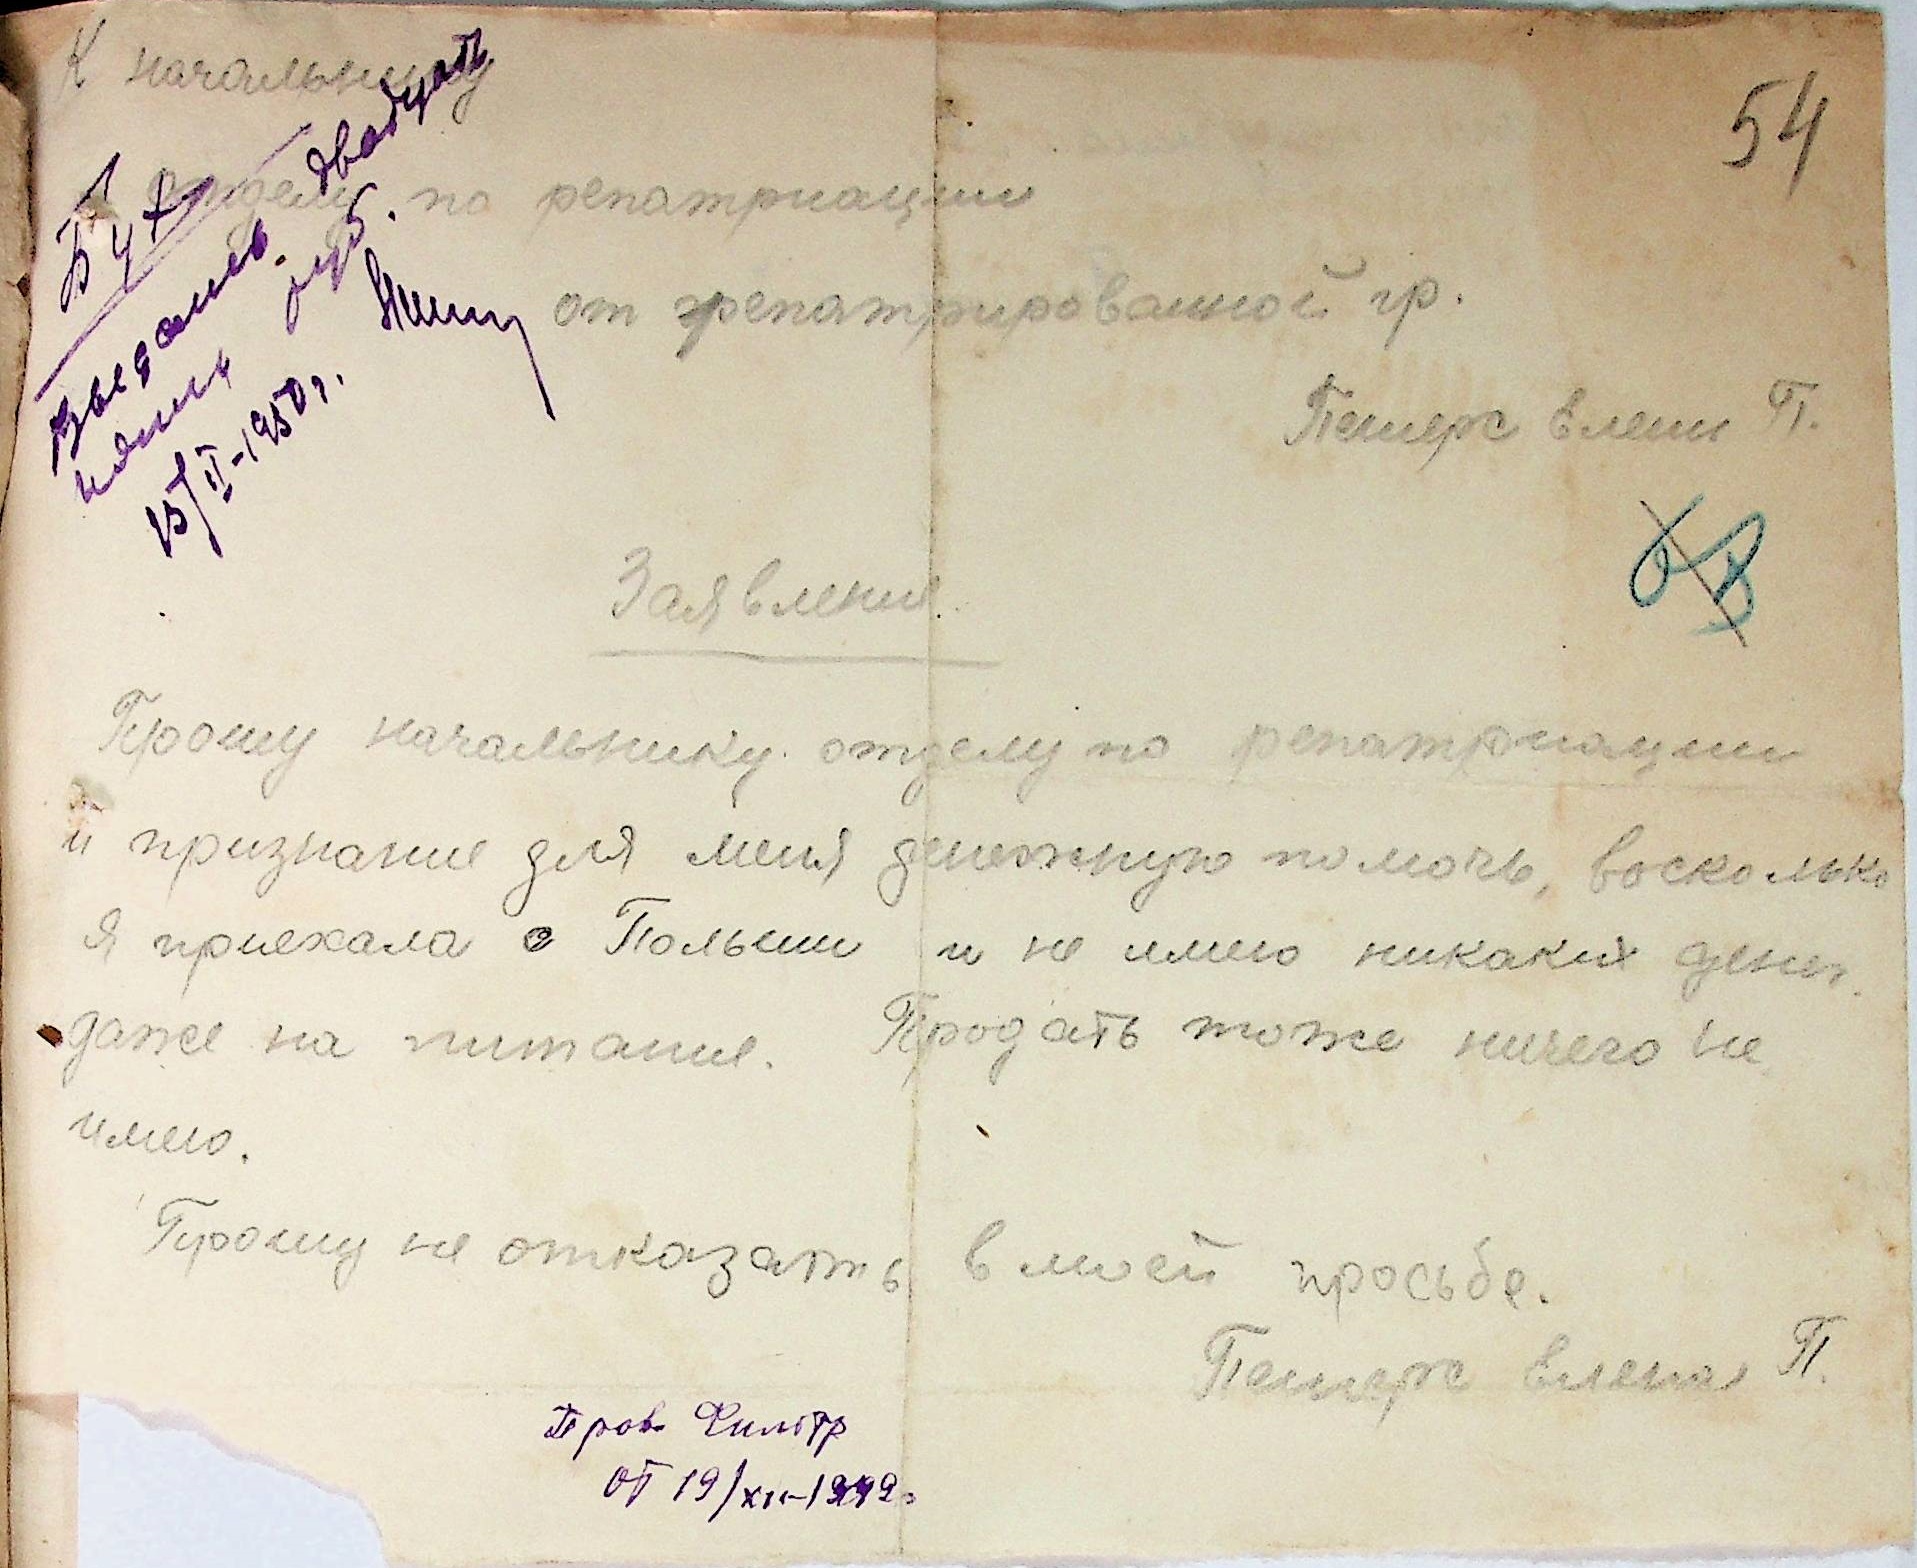 К начальнику
54
отделу по репатриации
от репатриированной гр.
Елены П.
Б у х
Выдать
двадцать
руб.
15/II-1950 г.
Заявление
Прошу начальнику отделу по репатриации
и признание для меня денежную помочь, восколько
я приехала с Польши и не имею никаких денег
даже на питание. Продать тоже ничего не
имею.
Прошу не отказать в моей просьбе.
Елена П.
Пров. Фильтр
от 19/XII-1949г